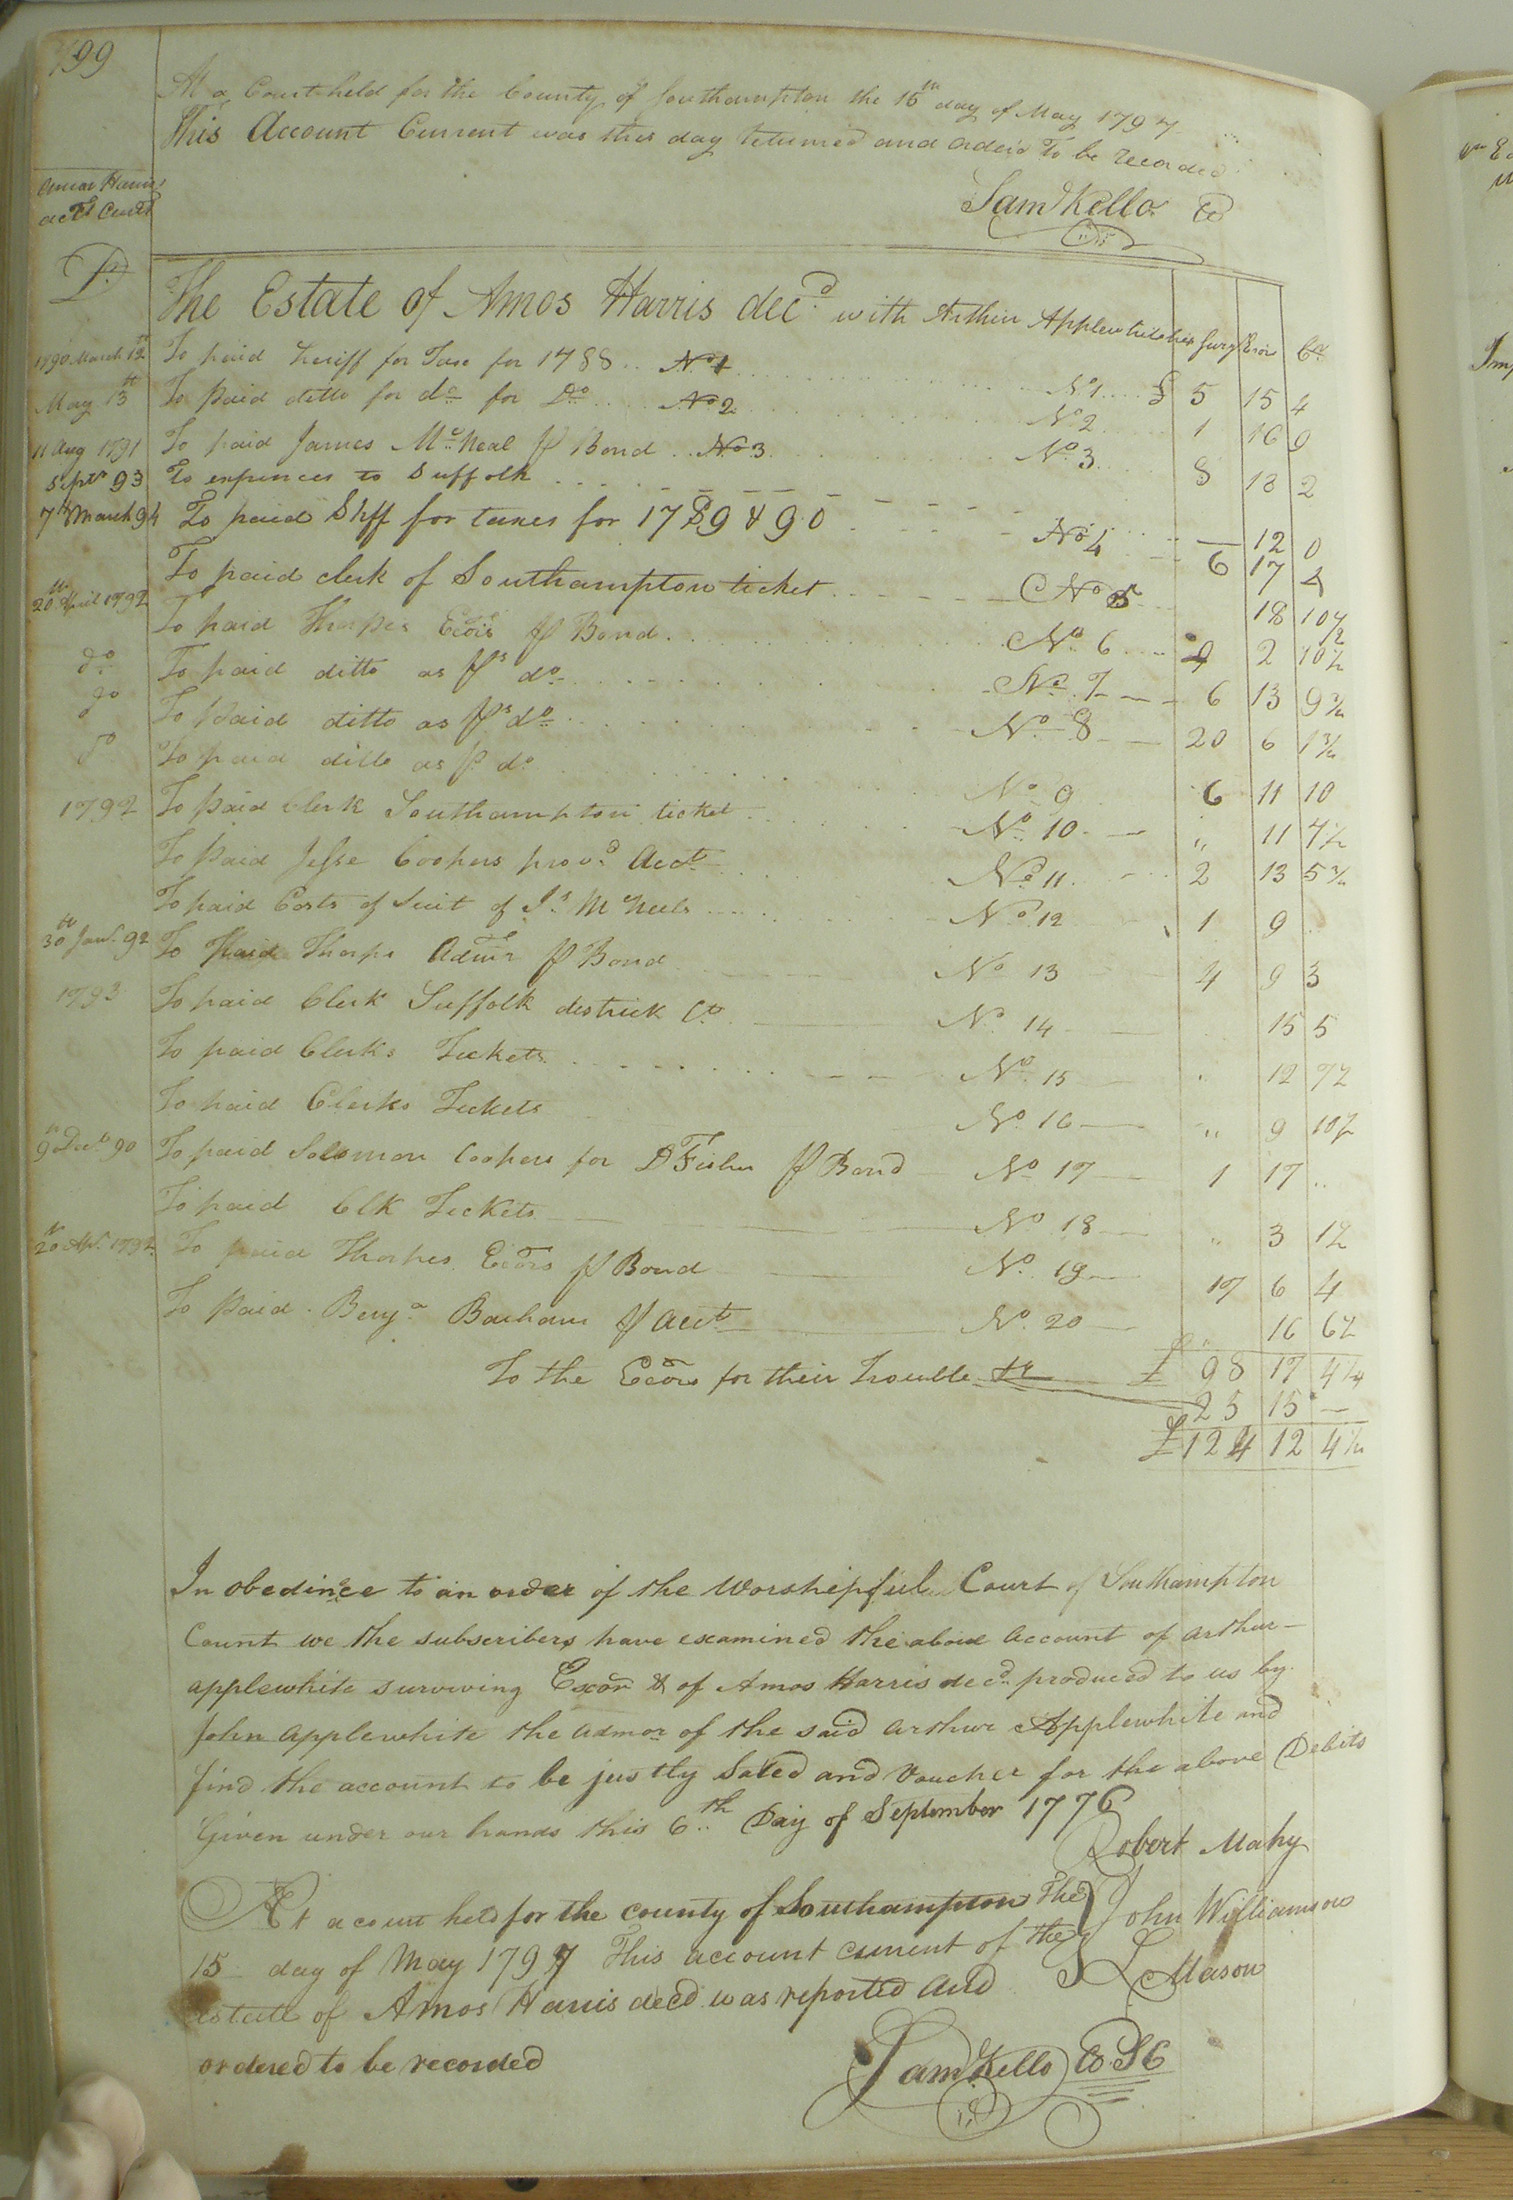 199
At a Court held for the County of Southampton the 15th day of May 1797
This Account Current was this day returned and orderd To be recorded
Saml Kello Cc
Amos Harris
acct Curt
Dr
The Estate of Amos Harris decd with Arthur Applewhite his Surg Exor Cr
1790 March 12th To paid Sheriff for Tax for 1788 .. No 1 No 1 .... £ 5 15 4
May 13th To paid ditto for do for Do .... No 2 No 2 1 16 9
11 Aug 1791 To paid James McNeal pr Bond .. No 3 No 3 8 18 2
Septr 93 To expences to Suffolk 12 0
7th March 94 To paid Shff for taxes for 1789 & 90 No 4 6 17 4
To paid clerk of Southampton ticket No 5 18 10 1/2
20th April 1792 To paid Thorpes Exors pr Bond No 6 9 2 10 1/2
do To paid ditto as prs do No 7 6 13 9 3/4
do To paid ditto as prs do No 8 20 6 1 3/4
do To paid ditto as pr do No 9 6 11 10
1792 To paid Clerk Southampton ticket No 10 " 11 7 1/2
To paid Jesse Coopers provd Acct No 11 2 13 5 3/4
To paid Costs of Suit of Js McNeels No 12 1 9
30th Jany 92 To Paid Thorps Admr pr Bond No 13 4 9 3
1793 To paid Clerk Suffolk destrick Ct No 14 15 5
To paid Clerks Tickets No 15 " 12 7 1/2
To paid Clerks Tickets No 16 " 9 10 1/2
9th Decr 90 To paid Solomon Coopers for D Fisher pr Bond No 17 1 17 ..
To paid Clk Tickets No 18 " 3 1 1/2
20th Apl 1792 To paid Thorpes Exors pr Bond No 19 17 6 4
To paid Benja Barham pr acct No 20 " 16 6 1/2
£ 98 17 4 1/4
To the Exors for their Trouble &c 25 15 —
£ 124 12 4 1/4
In obedince to an order of the Worshipful Court of Southampton
Count we the subscribers have examined the above account of Arthur
applewhite surviving Exor & of Amos Harris decd produced to us by
John applewhite the admor of the said Arthur Applewhite and
find the account to be justly Sated and Voucher for the above Debits
Given under our hands this 6th Day of September 1776
Robert Mahy
John Williamson
L Mason
At a court held for the county of Southampton The
15 day of May 1797 This account current of the
estate of Amos Harris decd was reported and
ordered to be recorded
Saml Kello Cc SC